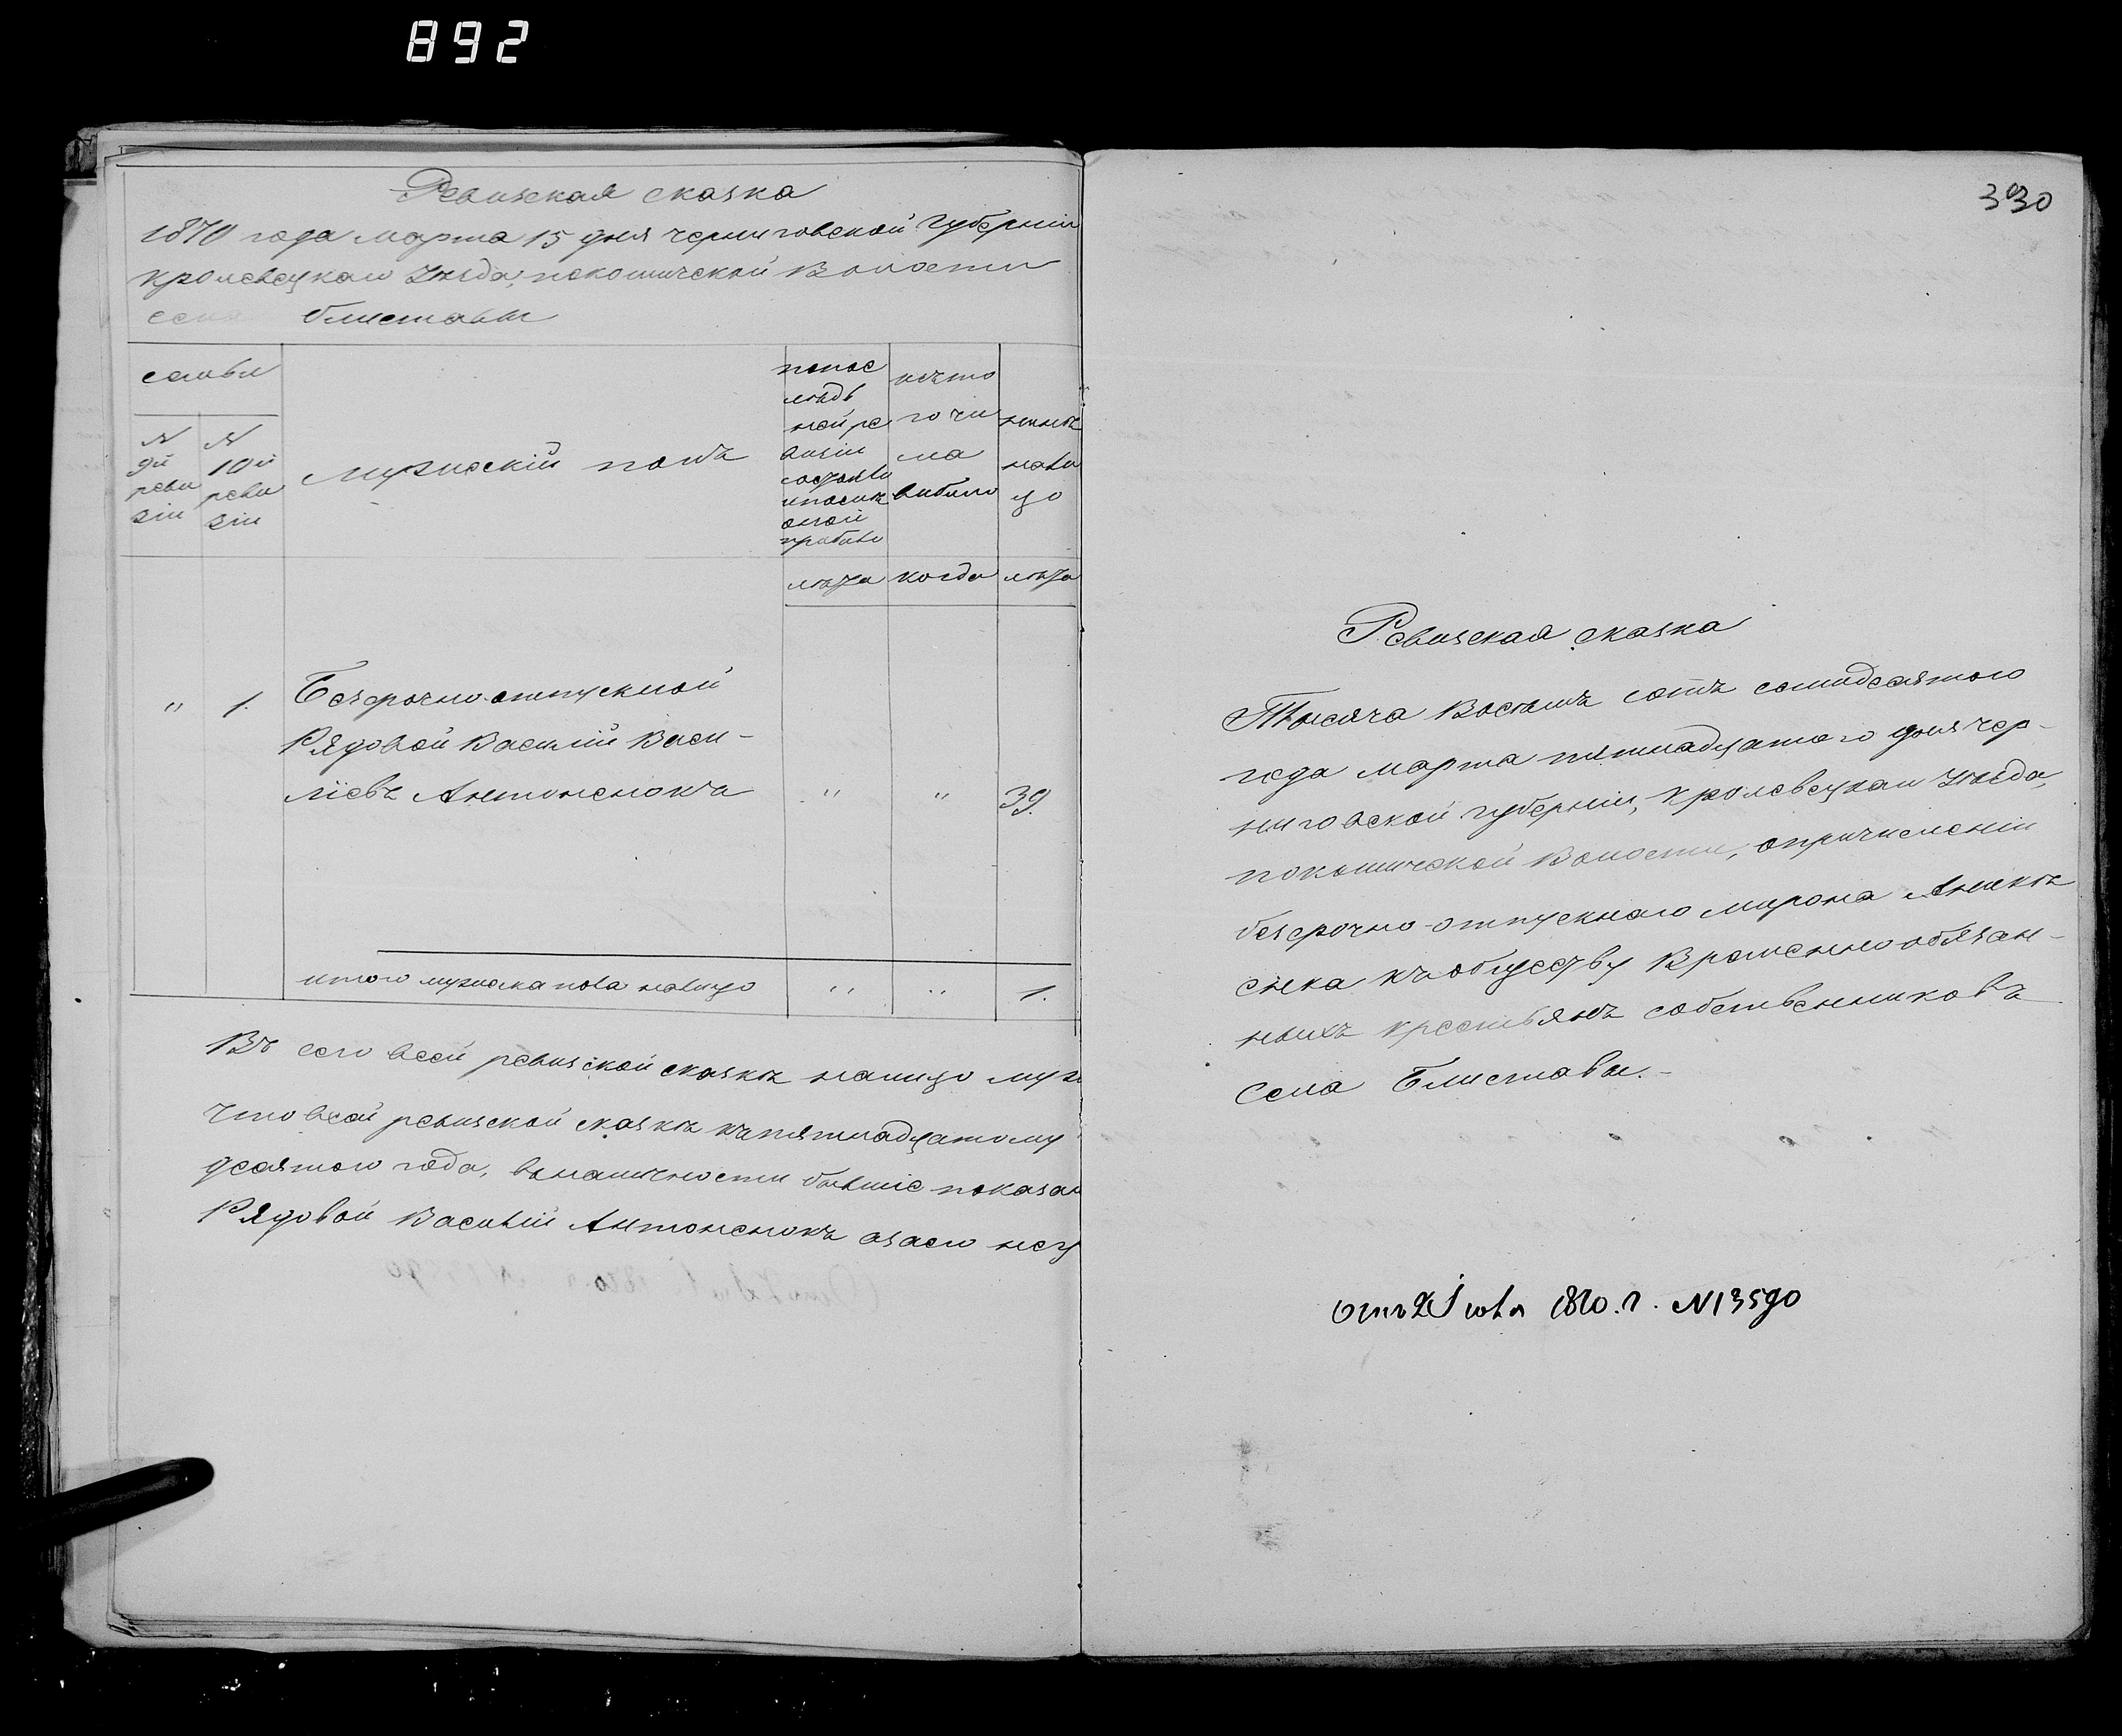 892
Ревизская сказка
1870 года марта 15 дня черниговской Губерніи
кролевецкаго Уезда, покошичской Волости
села блиставы
семьи
N 9й ревизіи
N 10й ревизіи
мужескій полъ
попослѣдьней ревизіи состояло ипослѣ оной прибыло
изъ того числа выбыло
нынѣ налицо
лѣта
когда
лѣта
" 1. Безсрочно-отпускной
Рядовой Василій Васи-
ліевъ Антоненокъ " " 39.
итого мужеска пола налицо " " 1.
Въ сего всей ревизской сказкѣ налицо муж
Что всей ревизской сказкѣ къпятнадцатому
десятого года, вналичности бывшіе показан
Рядовой Василій Антоненокъ азасю неу
330
Ревизская сказка
Тысяча Восемъ сотъ семидесятого
года марта пятнадцатого дня чер-
ниговской губерніи, кролевецкаго Уѣзда,
покошичской Волости, опричисленіи
безсрочно-отпускнаго мирона Анике
енка къобществу Временнообязан-
ныхъ крестьянъ собственниковъ
Села Блиставы.-
отъ 2 Іюля 1870.г. N13590